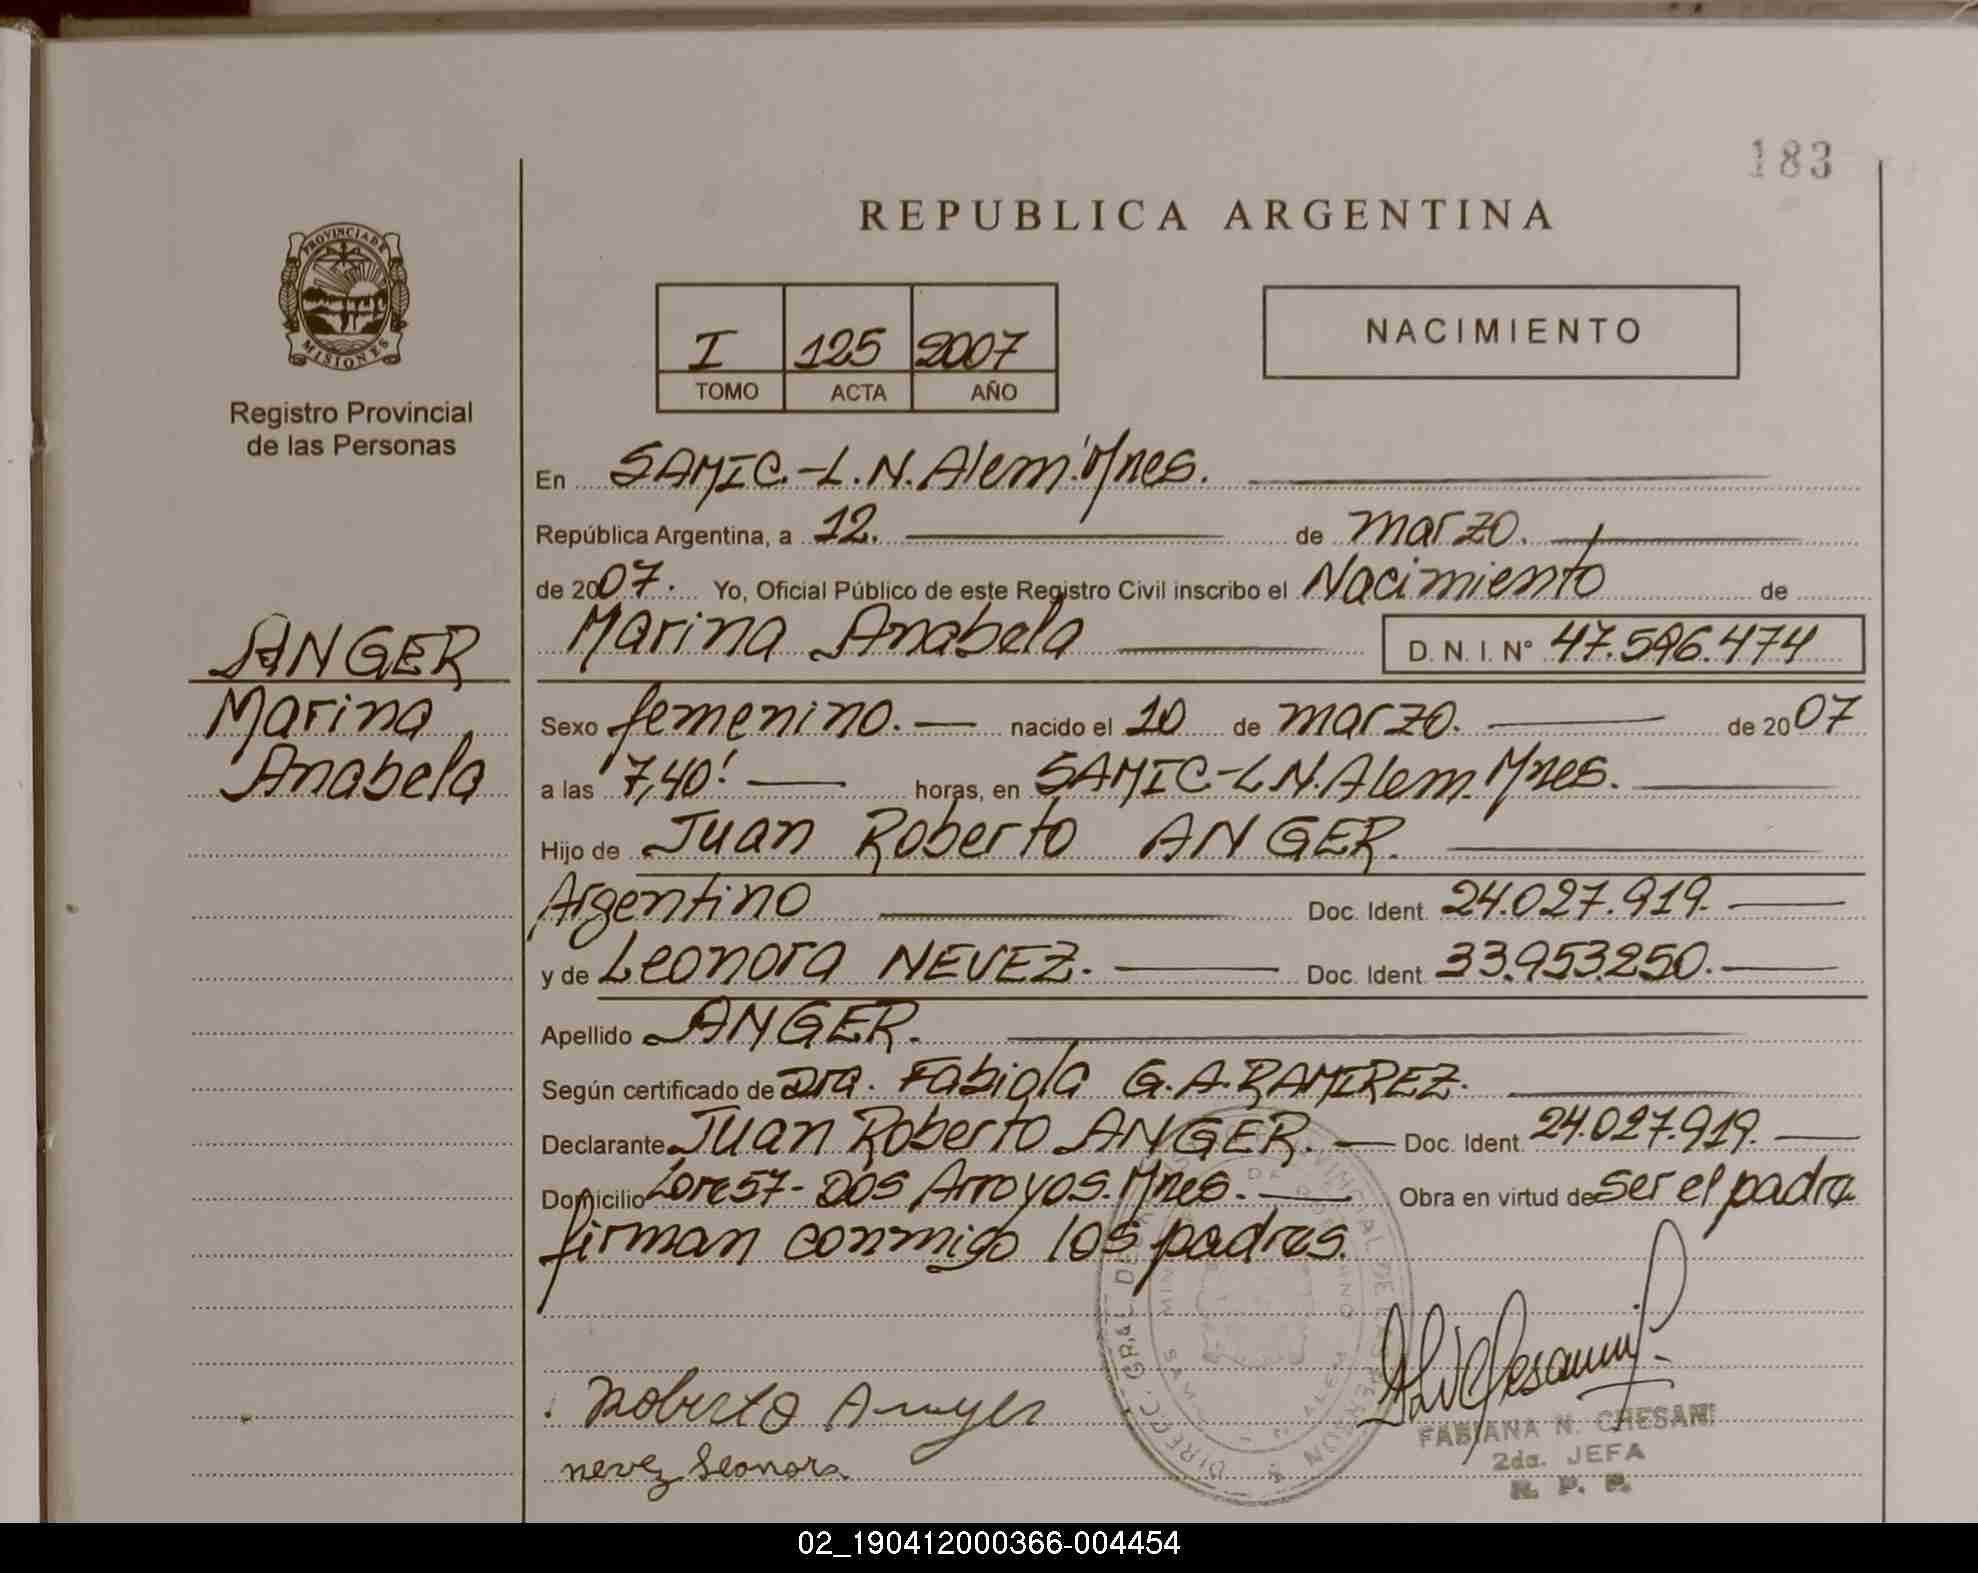 183
REPUBLICA ARGENTINA
PROVINCIA DE
MISIONES
Registro Provincial
de las Personas
I 125 2007
TOMO ACTA AÑO
NACIMIENTO
En SAMIC.-L.N.Alem.Mnes.
República Argentina, a 12. de marzo.
de 2007. Yo, Oficial Público de este Registro Civil inscribo el Nacimiento de
Marina Anabela D.N.I. N° 47.596.474
ANGER
Marina
Anabela
Sexo femenino. nacido el 10 de marzo. de 2007
a las 7,40' horas, en SAMIC-L.N.Alem.Mnes.
Hijo de Juan Roberto ANGER.
Argentino Doc. Ident. 24.027.919.
y de Leonora NEVEZ. Doc. Ident. 33.953.250.
Apellido ANGER.
Según certificado de Dra. Fabiola G.A.RAMIREZ.
Declarante Juan Roberto ANGER. Doc. Ident. 24.027.919.
Domicilio Lote 57- DOS Arroyos.Mnes. Obra en virtud de ser el padre
firman conmigo los padres.
Roberto Anger
nevez Leonora
FABIANA N. CHESANI
2da. JEFA
R. P. P.
02_190412000366-004454